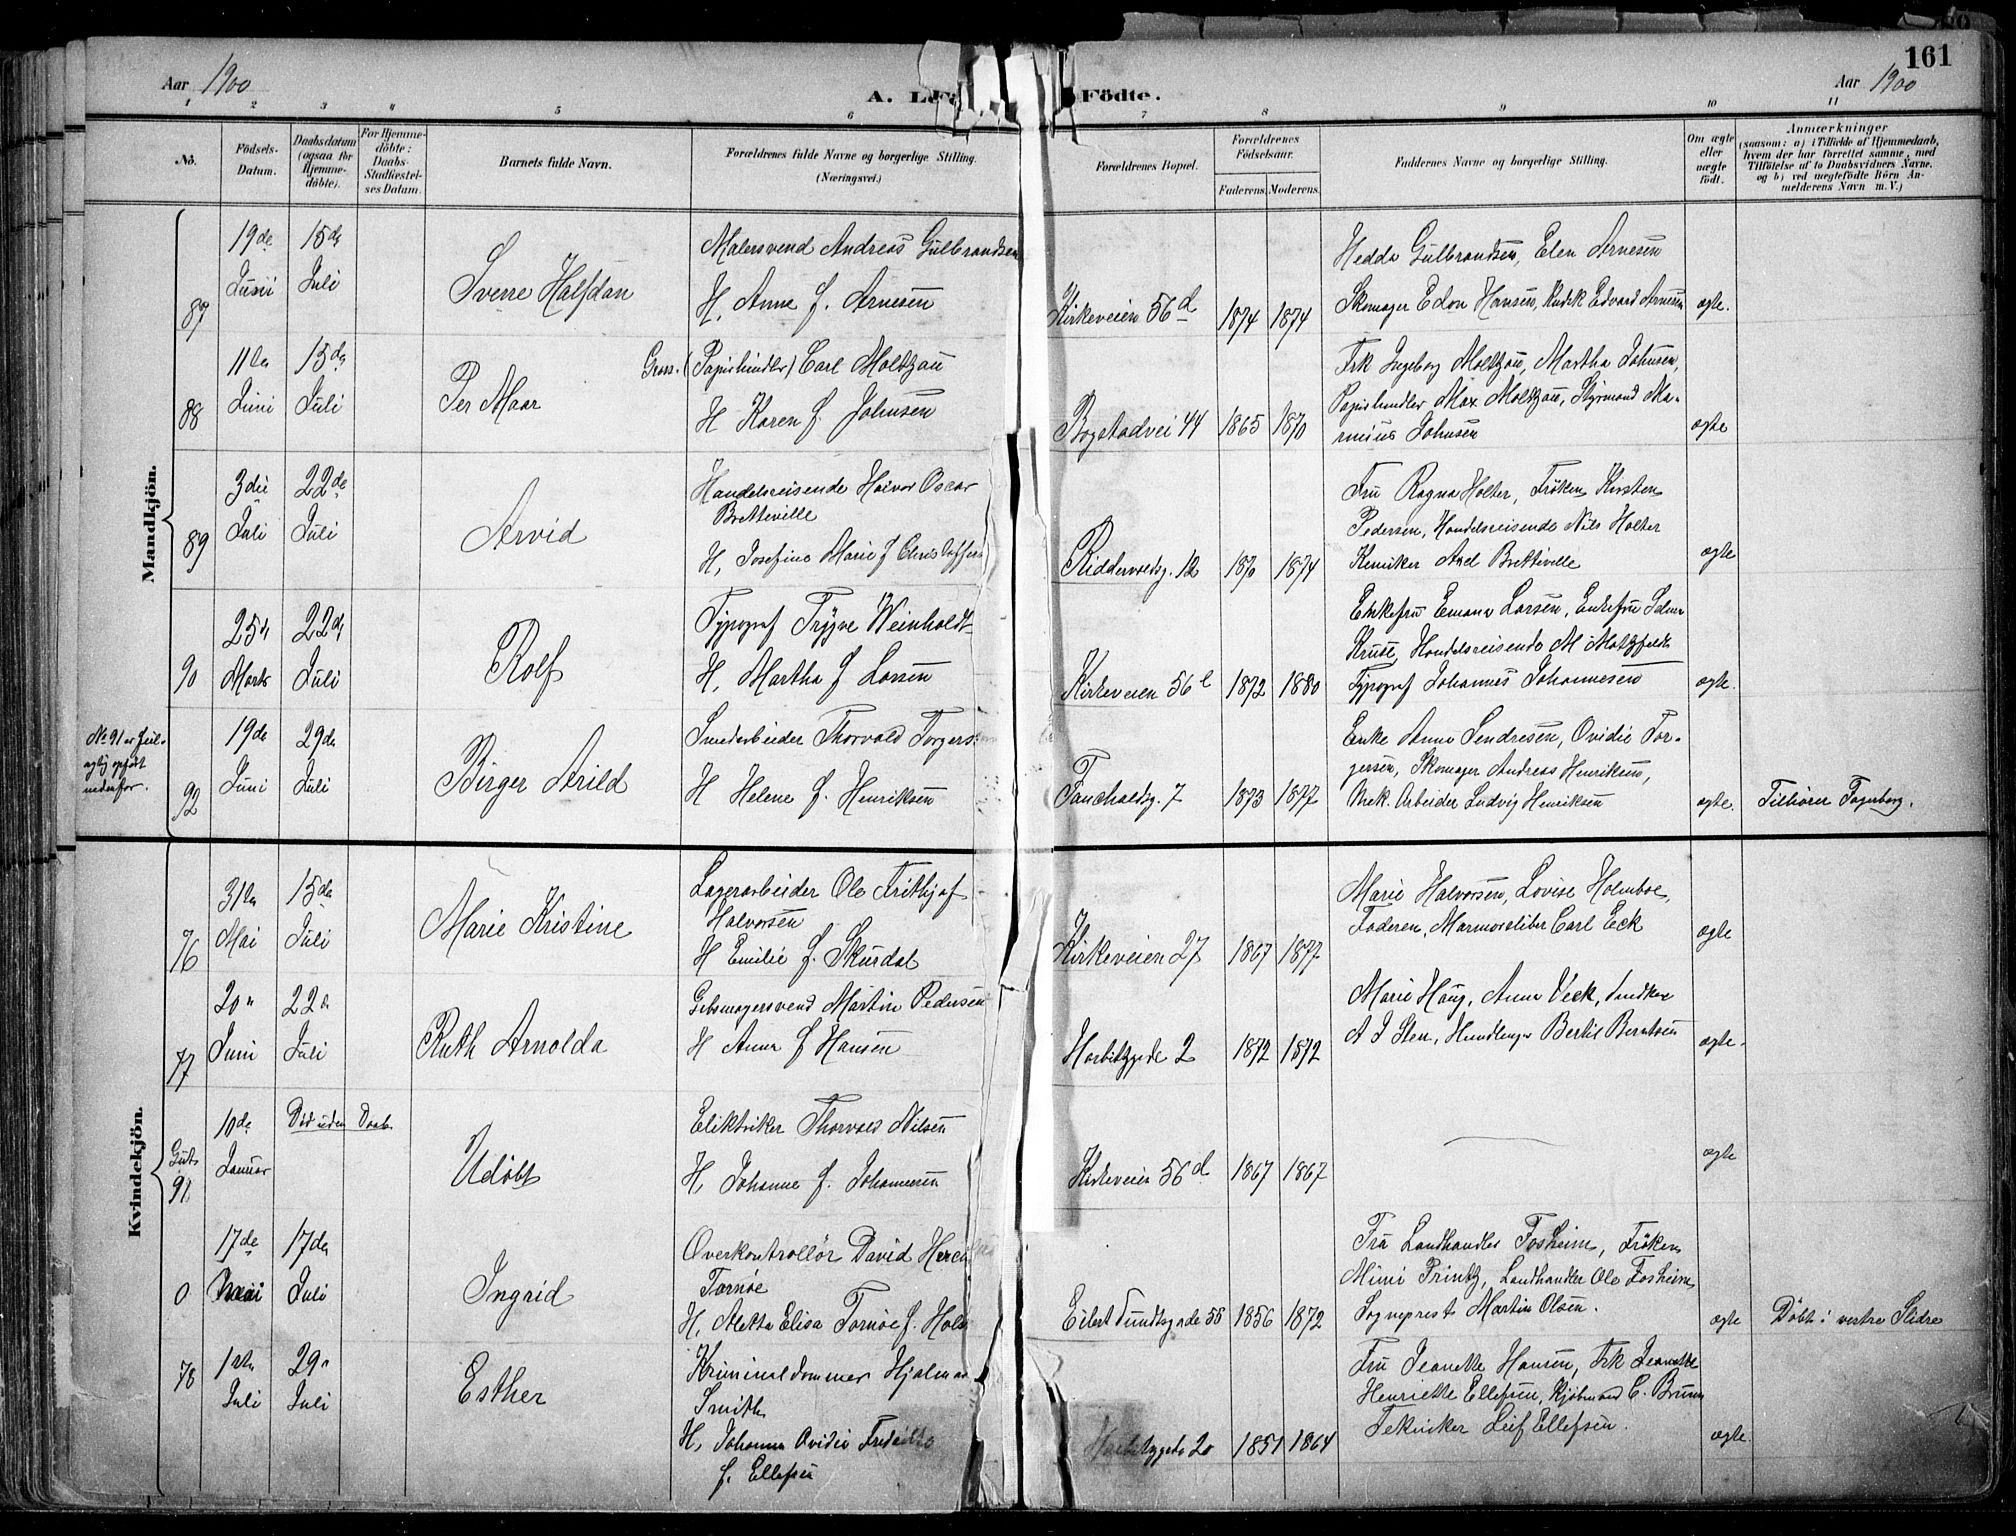 161
Aar 1900
A. L
Födte.
Aar 1900
1 2 3 4 5 6 7 8 9 10 11
No.
Födsels-Datum.
Daabsdatum (ogsaa for Hjemme-döbte).
For Hjemme-döbte: Daabs-Stadfæstel-ses Datum.
Barnets fulde Navn.
Forældrenes fulde Navne og borgerlige Stilling. (Næringsvei.)
Forældrenes Bopæl.
Forældrenes Födselsaar.
Faderens. Moderens.
Faddernes Navne og borgerlige Stilling.
Om ægte eller uægte födt.
Anmærkninger
(saasom: a) i Tilfælde af Hjemmedaab,
hvem der har forrettet samme, med
Tilföielse af to Daabsvidners Navne.
og b) ved uægtefödte Börn An-
melderens Navn m. V.)
Mandkjön.
87
19de Juni
15de Juli
Sverre Halfdan
Malersvend Andreas Gulbrandsen
H. Anna f. Arnesen
Kirkeveien 56d
1874 1874
Hedda Gulbrandsen, Elen Arnesen
Skomager Edon Hansen, Edvard Arnesen
ægte.
88
11te Juni
15de Juli
Per Maar
Gross. (Papirhandler) Carl Moltzau
H Karen f. Johnsen
Bogstadvei 44
1865 1870
Frk Ingeborg Moltzau, Martha Johnsen,
Papirhandler Max Moltzau, Styrmand Ma-
rinius Johnsen
ægte
89
3die Juli
22de Juli
Arvid
Handelsreisende Halvor Oscar
Bretteville
H, Josefine Marie f Christoffers
Riddervoldsg. 12
1870 1874
Fru Ragna Holter, Fröken Kirsten
Pedersen, Handelsreisende Nils Holter
Kemiker Axel Bretteville
ægte
90
25de Marts
22de Juli
Rolf
Typograf Trygve Weinholdt
H, Martha f Larsen
Kirkeveien 56e
1872 1880
Enkefru Emma Larsen, Enkefru Selma
Kruse, Handelsreisende M Motzfeldt
Typograf Johannes Johannesen
ægte.
No 91 er feil-
agtig opført
nedenfor.
92
19de Juni
29de Juli
Birger Arild
Smedarbeider Thorvald Torgers
H Helene f. Henriksen
Fauchaldsg. 7
1873 1877
Enke Anna Sendresen, Ovidie Tor-
gersen, Skomager Andreas Henriksen,
Mek. Arbeider Ludvig Henriksen
ægte.
Tilhörer Fagerborg.
Kvindekjön.
76
31te Mai
15de Juli
Marie Kristine
Lagerarbeider Ole Frithjof
Halvorsen
H Emilie f. Skurdal
Kirkeveien 27
1867 1877
Marie Halvorsen, Lovise Holmboe,
Faderen, Marmorsliber Carl Eck
ægte
77
20de Juni
22de Juli
Ruth Arnolda
Gibsmagersvend Martin Pedersen
H Anna f Hansen
Harbitzgade 2
1872 1872
Marie Haug, Anna Veck,
A J Sten, Handlende Bertil Berntsen
ægte.
Guts 91.
10de Januar
Död uden Daab
Udöbt
Elektriker Thorvald Nilsen
H, Johanne f. Johannesen
Kirkeveien 56d
1867 1867
ægte
0
17de Mai
17de Juli
Ingrid
Overkontrollör David Herc
Tornöe
H, Aletta Elisa Tornöe f. Holm
Eilert Sundtsgade 55
1856 1872
Fru Landhandler Fosheim, Fröken
Mimi Printz, Landhandler Ole Fosheim
Sogneprest Martin Olsen.
ægte
Döbt i vestre Slidre
78
1ste Juli
29de Juli
Esther
Kriminaldommer Hjalmar
Smith
H, Johanna Ovidie Fredrikke
f. Ellefsen
Harbitzgade 20
1851 1864
Fru Jeanette Hansen, Frk Jeanette
Henriette Ellefsen, Kjöbmand C. Bruun
Tekniker Leif Ellefsen.
ægte.